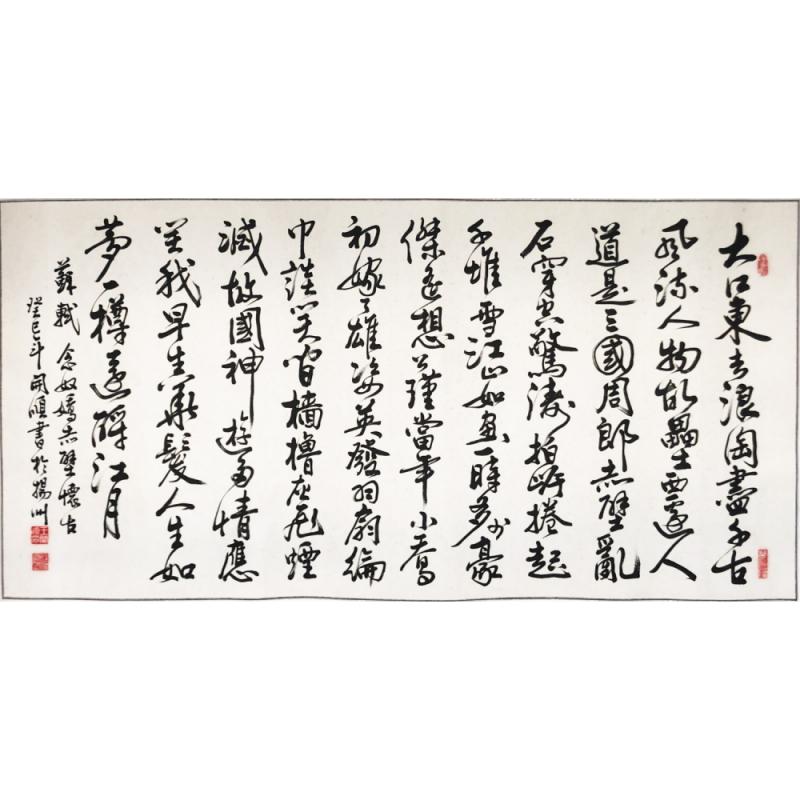 大江東去浪淘盡千古
風流人物故壘西邊人
道是三國周郎赤壁亂
石穿空驚濤拍岸捲起
千堆雪江山如畫一時多少豪
傑遙想公瑾當年小喬
初嫁了雄姿英發羽扇綸
巾談笑間檣櫓灰飛煙
滅故國神遊多情應
笑我早生華髮人生如
夢一樽還酹江月
蘇軾 念奴嬌赤壁懷古
癸巳年開順書於揚州